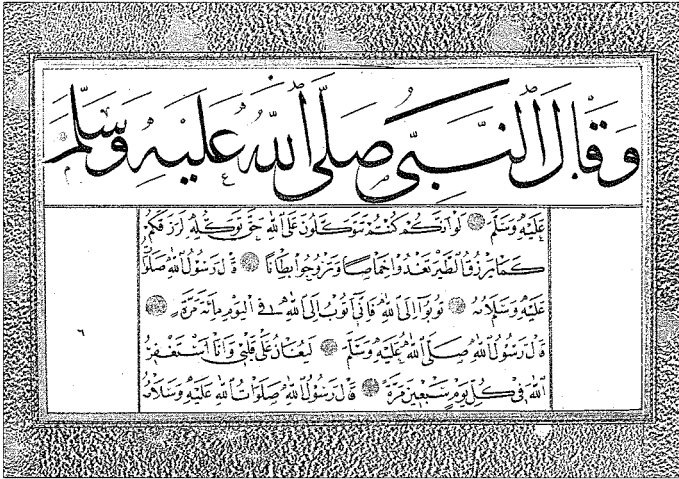 وَقَالَ النَّبِيُّ صَلَّى اللهُ عَلَيْهِ وَسَلَّمَ
عَلَيْهِ وَسَلَّمَ لَوْ اَنَّكُمْ كُنْتُمْ تَتَوَكَّلُونَ عَلَى اللهِ حَقَّ تَوَكُّلِهِ لَرَزَقَكُمْ
كَمَا يَرْزُقُ الطَّيْرَ تَغْدُوا خِمَاصًا وَتَرُوحُ بِطَانًا قَالَ رَسُولُ اللهِ صَلَوَاتُ
عَلَيْهِ وَسَلَامُهُ تُوبُوا اِلَى اللهِ فَاِنِّى اَتُوبُ اِلَى اللهِ فِى الْيَوْمِ مِائَةَ مَرَّةٍ
قَالَ رَسُولُ اللهِ صَلَّى اللهُ عَلَيْهِ وَسَلَّمَ لَيُغَانُ عَلَى قَلْبِى وَاَنَا اَسْتَغْفِرُ
اللهَ فِى كُلِّ يَوْمٍ سَبْعِينَ مَرَّةً قَالَ رَسُولُ اللهِ صَلَوَاتُ اللهِ عَلَيْهِ وَسَلَامُهُ
٦